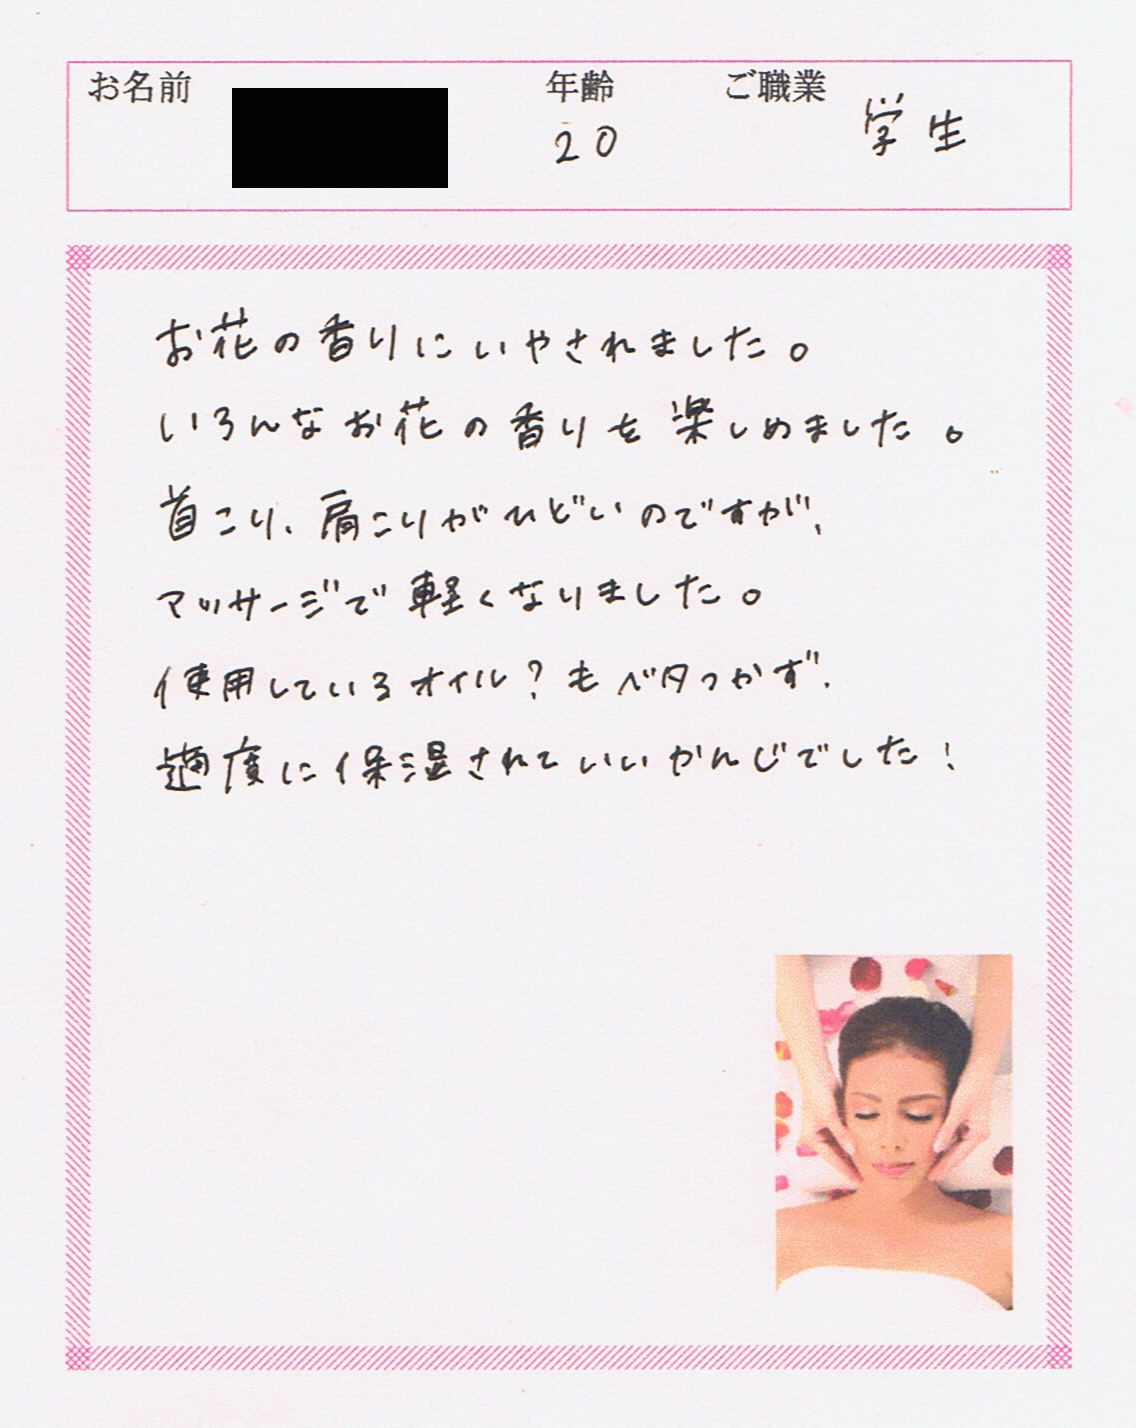 お名前 年齢 ご職業
20 学生
お花の香りにいやされました。
いろんなお花の香りを楽しめました。
首こり、肩こりがひどいのですが、
マッサージで軽くなりました。
使用しているオイル?もベタつかず、
適度に保湿されていいかんじでした!